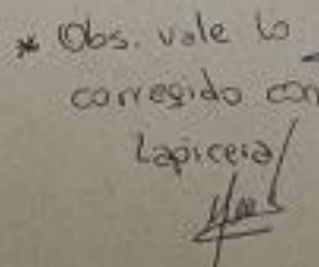 * Obs. vale lo
corregido con
Lapicera